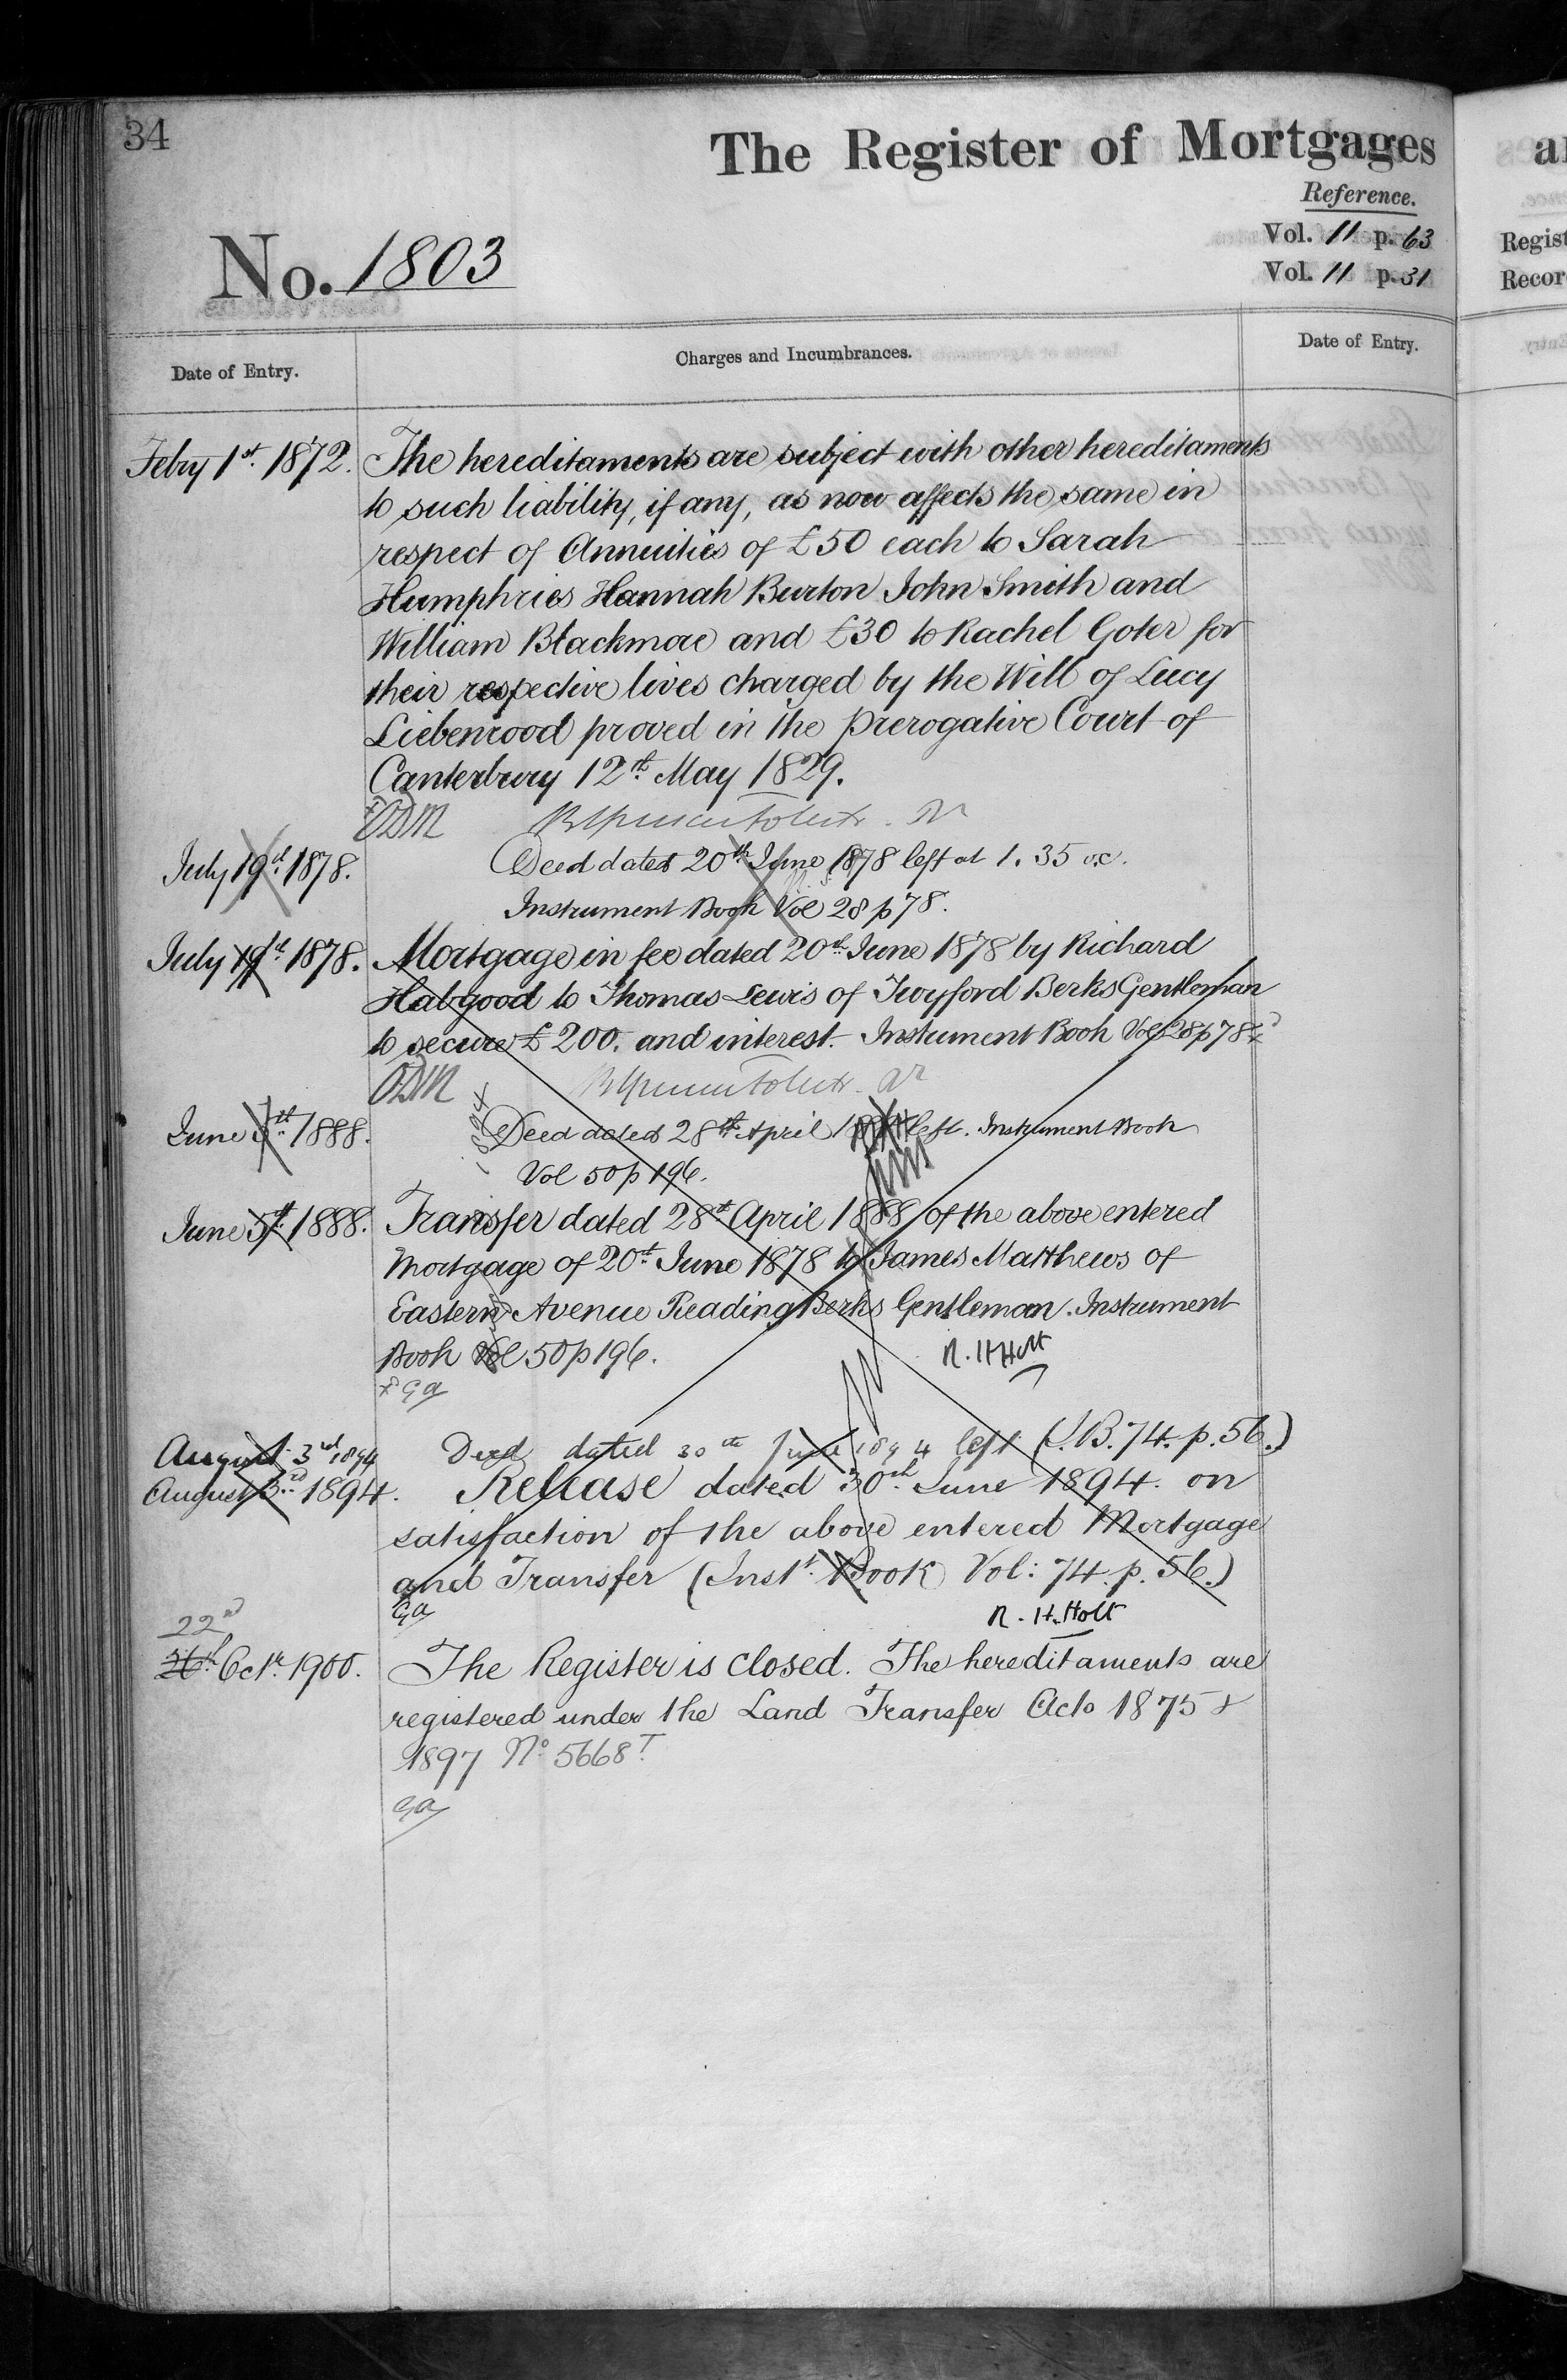 34
The Register of Mortgages
Reference.
No. 1803
Vol. 11 p. 63
Vol. 11 p. 31
Date of Entry.
Charges and Incumbrances.
Date of Entry.
Regist
Recor
Feby 1st. 1872. The hereditaments are subject with other hereditaments
to such liability, if any, as now affects the same in
respect of Annuities of £50 each to Sarah
Humphries Hannah Burton John Smith and
William Blackmore and £30 to Rachel Goter for
their respective lives charged by the Will of Lucy
Liebenrood proved in the Prerogative Court of
Canterbury 12th May 1829.
ODM
July 19th 1878. Deed dated 20th June 1878 left at 1.35
Instrument Book Vol 28 p 78.
July 19th 1878. Mortgage in fee dated 20th June 1878 by Richard
Habgood to Thomas Lewis of Twyford Berks Gentleman
to secure £200. and interest. Instrument Book Vol 28 p 78
ODM
June 5th 1888. Deed dated 28th April left. Instrument Book
Vol 50 p 196.
June 5th 1888. Transfer dated 28th April 1888 of the above entered
Mortgage of 20th June 1878 to James Matthews of
Eastern Avenue Reading Berks Gentleman. Instrument
Book Vol 50 p 196.
R. H Holt
GA
August 3rd 1894 Deed dated 30th June 1894 left (I.B. 74. p. 56.)
August 3rd 1894. Release dated 30th June 1894. on
satisfaction of the above entered Mortgage
and Transfer (Inst. Book Vol: 74. p. 56.)
GA
R. H. Holt
22d
Octr. 1900. The Register is closed. The hereditaments are
registered under the Land Transfer Acts 1875 &
1897 No 5668T
GA